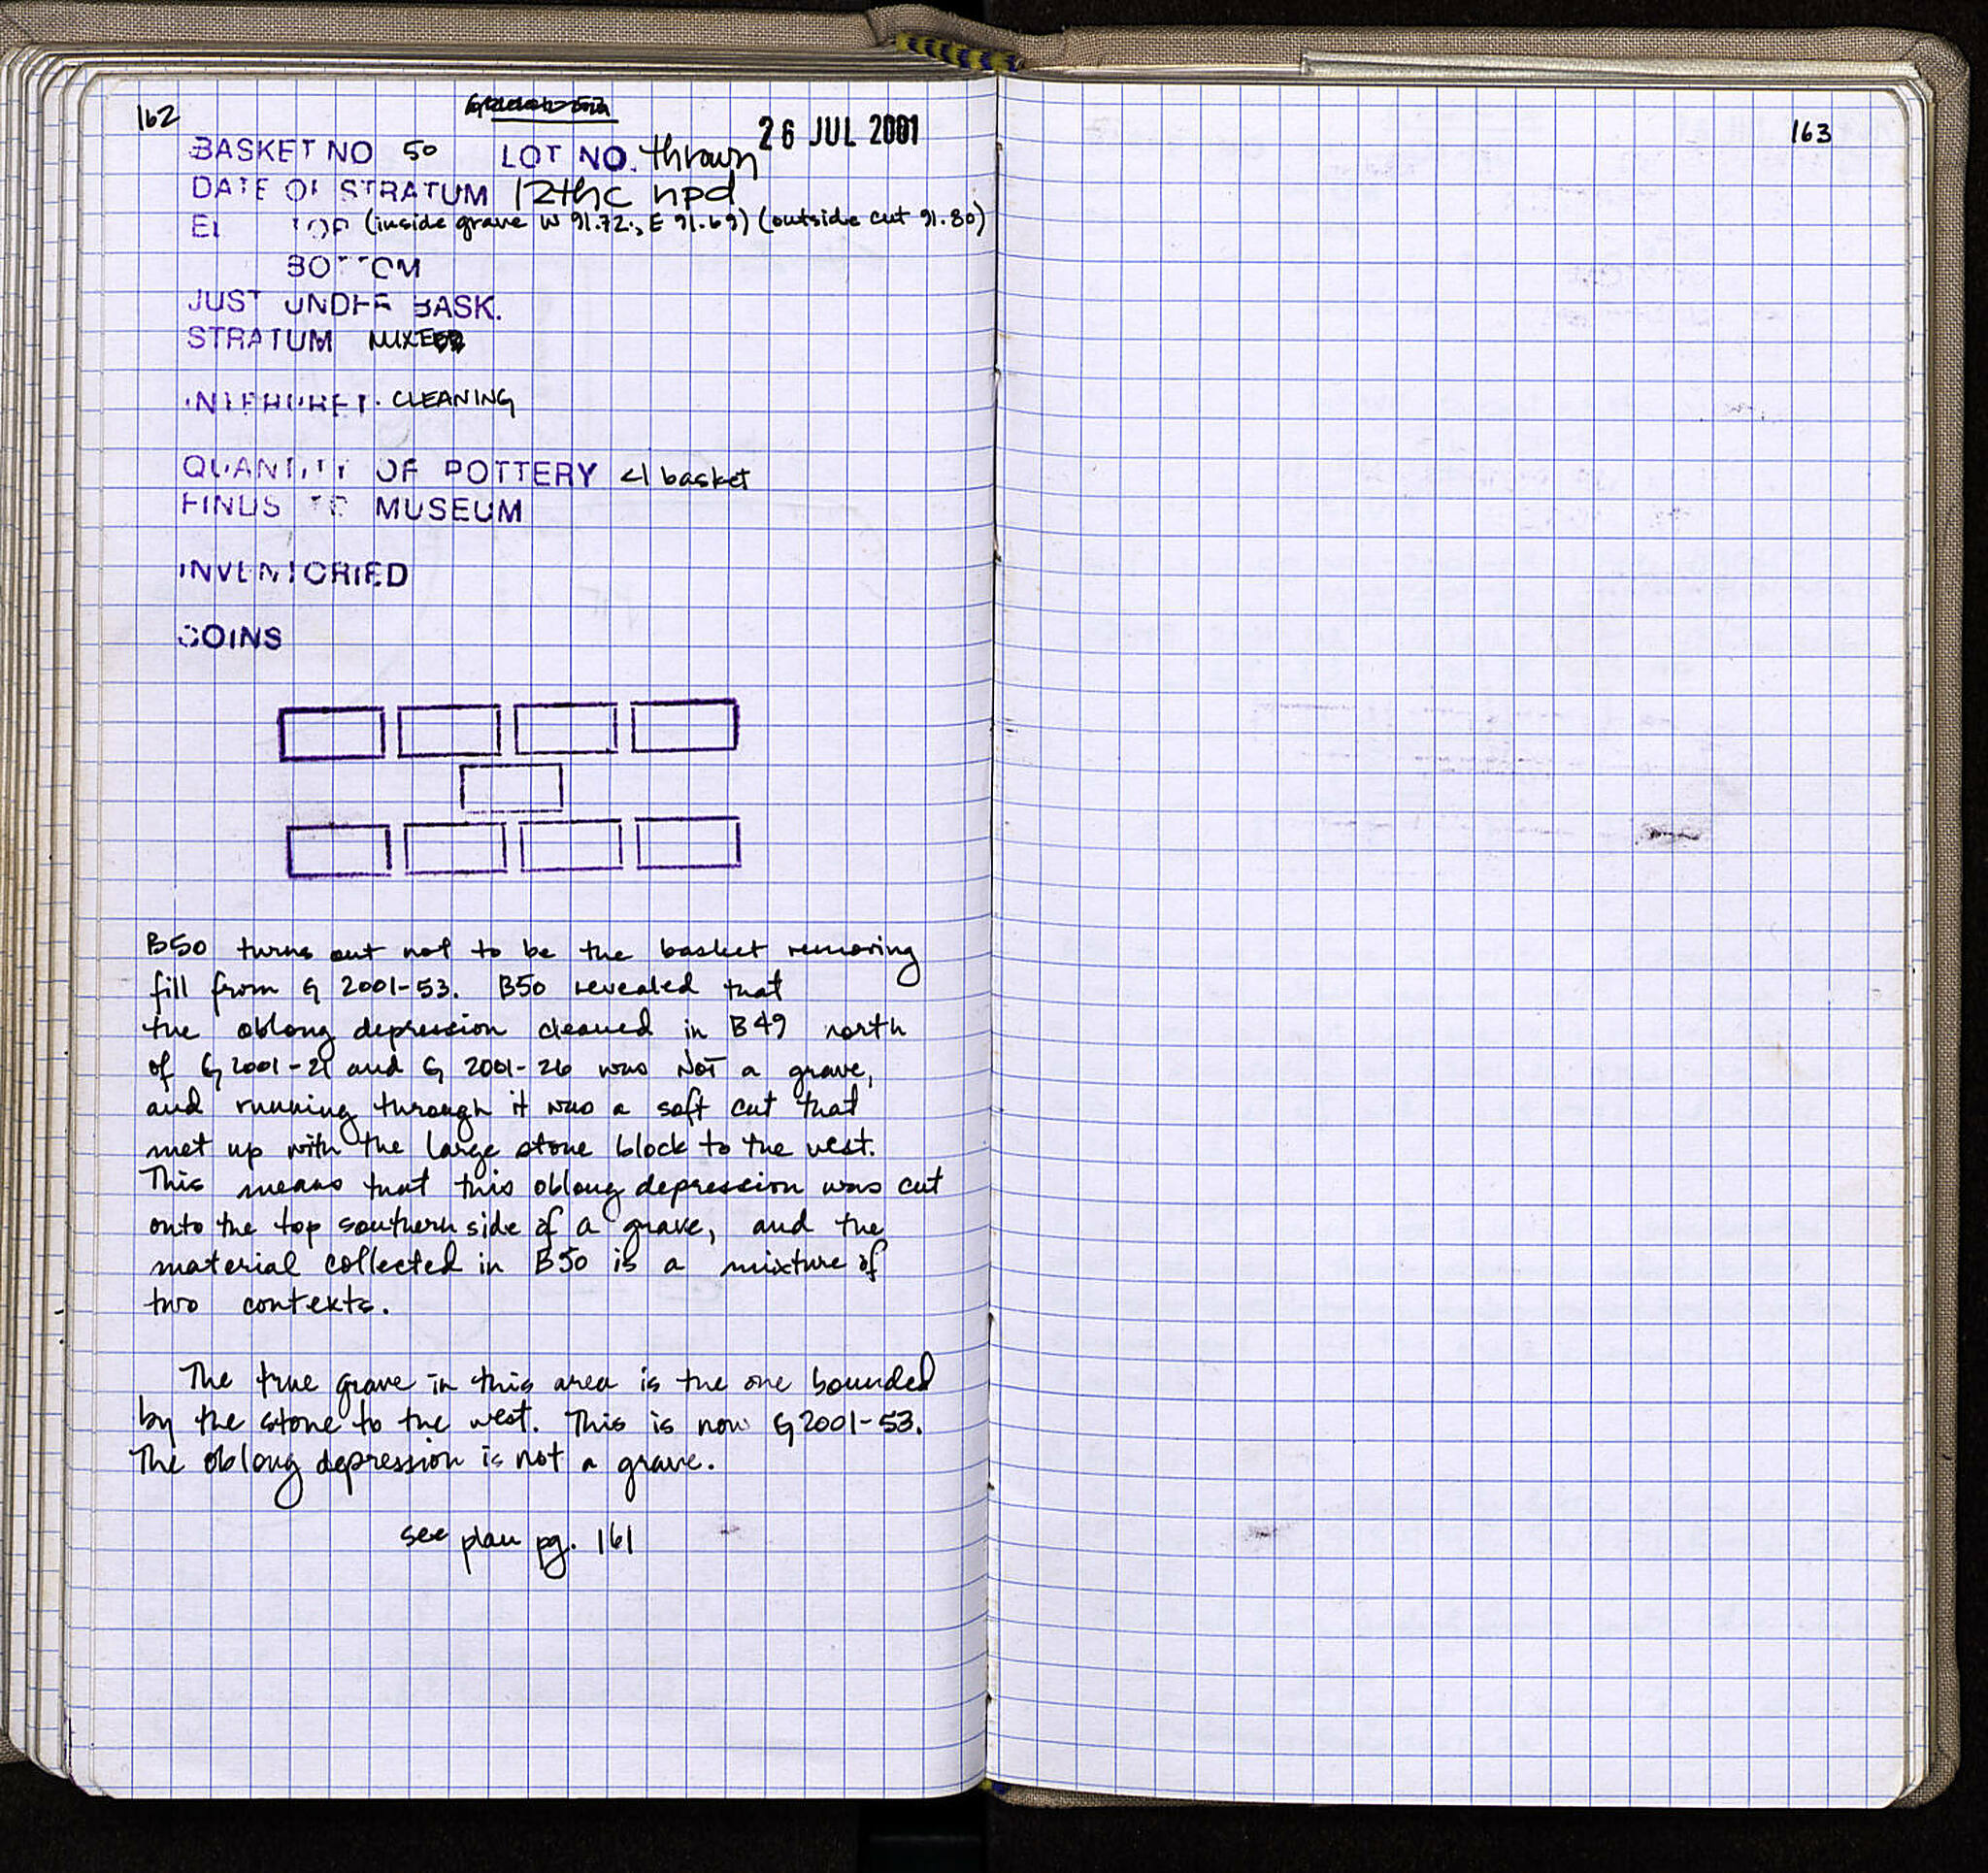 162
26 JUL 2001
BASKET NO 50 LOT NO. thrown
DATE OF STRATUM 12thc npd
EL TOP (inside grave W 91.72., E 91.69) (outside cut 91.80)
BOTTOM
JUST UNDER BASK.
STRATUM MIXED
INTERPRET. CLEANING
QUANTITY OF POTTERY <1 basket
FINDS TO MUSEUM
INVENTORIED
COINS
B50 turns out not to be the basket removing
fill from G 2001-53. B50 revealed that
the oblong depression cleaned in B49 north
of G 2001-21 and G 2001-26 was NOT a grave,
and running through it was a soft cut that
met up with the large stone block to the west.
This means that this oblong depression was cut
onto the top southern side of a grave, and the
material collected in B50 is a mixture of
two contexts.
The true grave in this area is the one bounded
by the stone to the west. This is now G 2001-53.
The oblong depression is not a grave.
see plan pg. 161
163